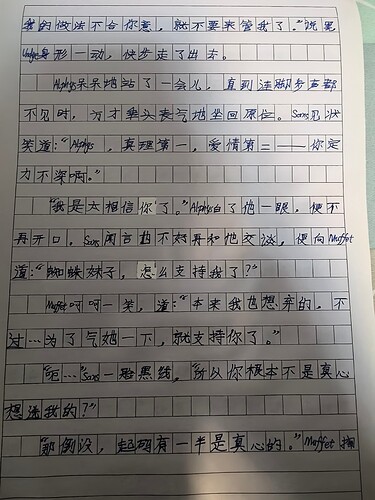 我的做法不合你意，就不要来管我了。”说罢
Undyne身形一动，快步走了出去。
Alphys呆呆地站了一会儿，直到连脚步声都
不见时，方才垂头丧气地坐回原位。Sans见状
笑道：“Alphys，真理第一，爱情第二——你定
力不深啊。”
“我是太相信你了。”Alphys白了他一眼，便不
再开口，Sans闻言也不好再和他交谈，便向Muffet
道：“蜘蛛妹子，怎么支持我了？”
Muffet呵呵一笑，道：“本来我也想弃的，不
过…为了气她一下，就支持你了。”
“呃…”Sans一脸黑线，“所以你根本不是真心
想选我的？”
“那倒没，起码有一半是真心的。”Muffet